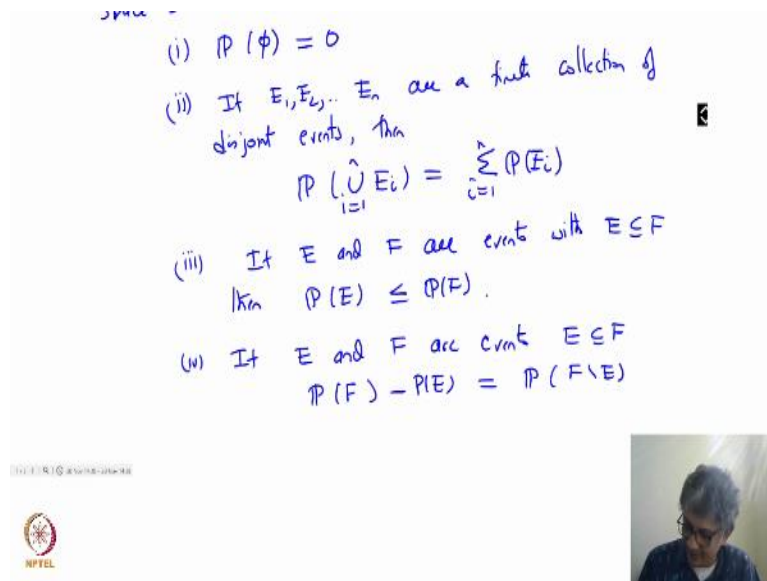 (i) ℙ(ϕ) = 0
(ii) If E₁,E₂,.. Eₙ are a finite collection of
disjoint events, then
ℙ(⋃ⁿᵢ₌₁ Eᵢ) = ∑ⁿᵢ₌₁ ℙ(Eᵢ)
(iii) If E and F are events with E ⊆ F
then ℙ(E) ≤ ℙ(F).
(iv) If E and F are events E ⊆ F
ℙ(F) – P(E) = ℙ(F\E)
NPTEL